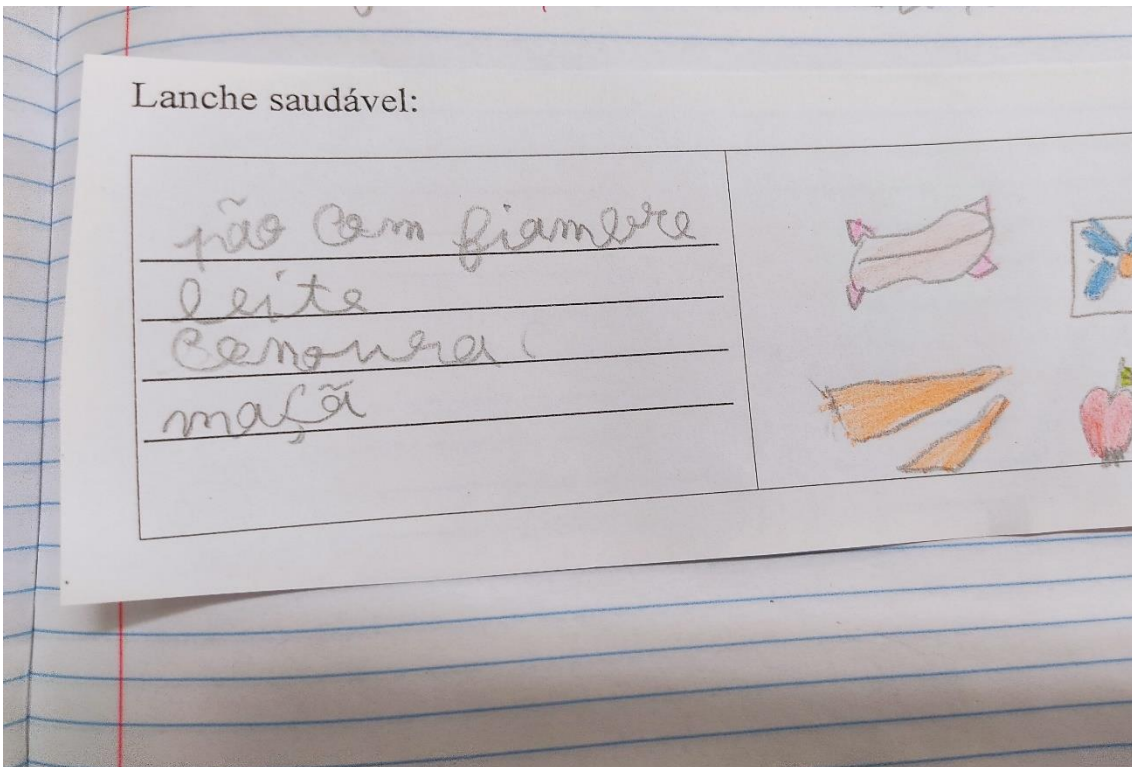 Lanche saudável:
pão com fiambre
leite
cenoura
maçã